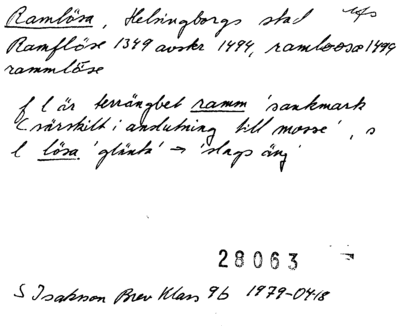 Ramlösa, Helsingborgs stad
Ramflöse 1349 avskr 1494, ramloosæ 1494
rammlöse
f l är terrängbet ramm 'sankmark
(särskilt i anslutning till mosse', s
l lösa 'glänta' → 'slags äng'
28063
S Isakson Brev Klass 9b 1979-04-18